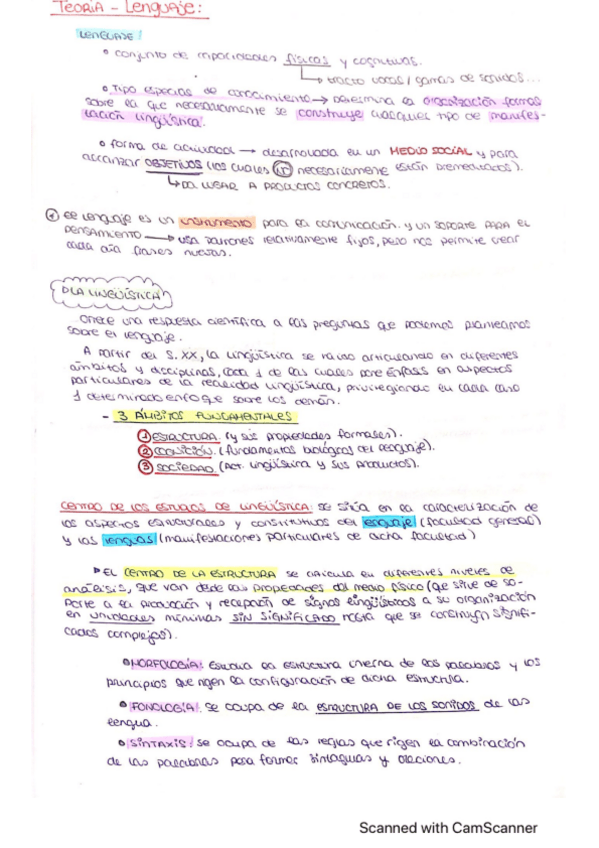 TEORÍA - Lenguaje:
LENGUAJE/
• conjunto de capacidades físicas y cognitivas.
↳ tracto vocal / gamas de sonidos...
• Tipo especial de conocimiento → determina la organización formal
sobre la que necesariamente se construye cualquier tipo de manifes-
tación lingüística.
• forma de actividad → desarrollada en un MEDIO SOCIAL y para
alcanzar OBJETIVOS (los cuales necesariamente están premeditados).
↳ DA LUGAR A PRODUCTOS CONCRETOS.
El lenguaje es un INSTRUMENTO para la comunicación y un SOPORTE PARA EL
PENSAMIENTO → usa patrones relativamente fijos, pero nos permite crear
cada día frases nuevas.
LA LINGÜÍSTICA
ofrece una respuesta científica a las preguntas que podemos plantearnos
sobre el lenguaje.
A partir del S. XX, la lingüística se ha ido articulando en diferentes
ámbitos y disciplinas, cada 1 de las cuales pone énfasis en aspectos
particulares de la realidad lingüística, privilegiando en cada caso
1 determinado enfoque sobre los demás.
- 3 ÁMBITOS FUNDAMENTALES
① ESTRUCTURA (y sus propiedades formales).
② COGNICIÓN (fundamentos biológicos del lenguaje).
③ SOCIEDAD (Act. lingüística y sus productos).
CENTRO DE LOS ESTUDIOS DE LINGÜÍSTICA: se sitúa en la caracterización de
los aspectos estructurales y constitutivos del lenguaje (facultad general)
y las lenguas (manifestaciones particulares de dicha facultad)
▶ EL CENTRO DE LA ESTRUCTURA se articula en diferentes niveles de
análisis, que van desde las propiedades del medio físico (que sirve de so-
porte a la producción y recepción de signos lingüísticos a su organización
en unidades mínimas SIN SIGNIFICADO hasta que se construyen signifi-
cados complejos).
• MORFOLOGÍA: Estudia la estructura interna de las palabras y los
principios que rigen la configuración de dicha estructura.
• FONOLOGÍA: se ocupa de la ESTRUCTURA DE LOS SONIDOS de las
lengua.
• SINTAXIS: se ocupa de las reglas que rigen la combinación
de las palabras para formar sintagmas y oraciones.
Scanned with CamScanner